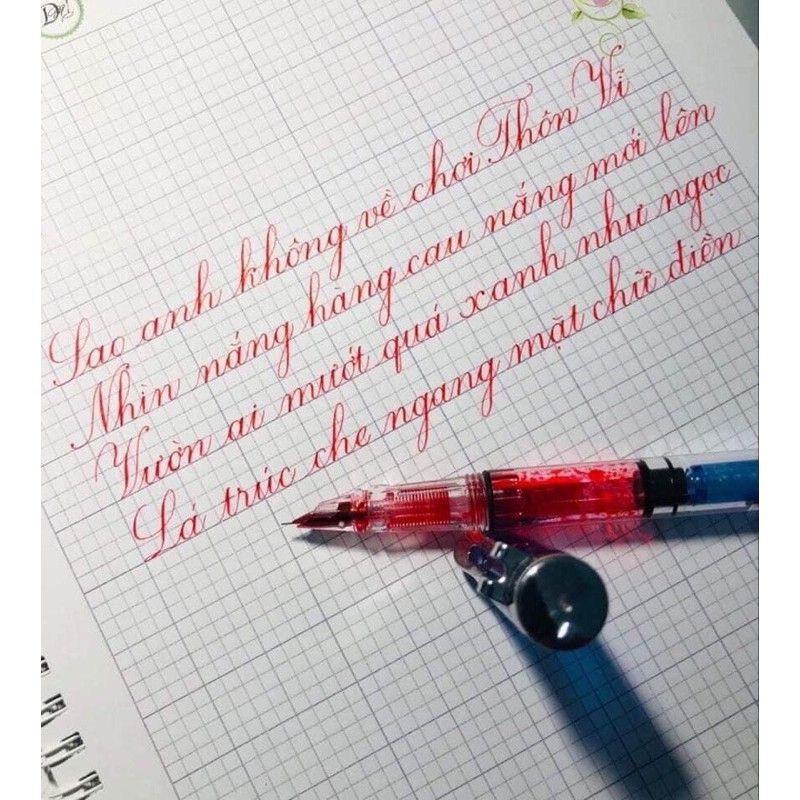 Sao anh không về chơi Thôn Vĩ
Nhìn nắng hàng cau nắng mới lên
Vườn ai mướt quá xanh như ngọc
Lá trúc che ngang mặt chữ điền